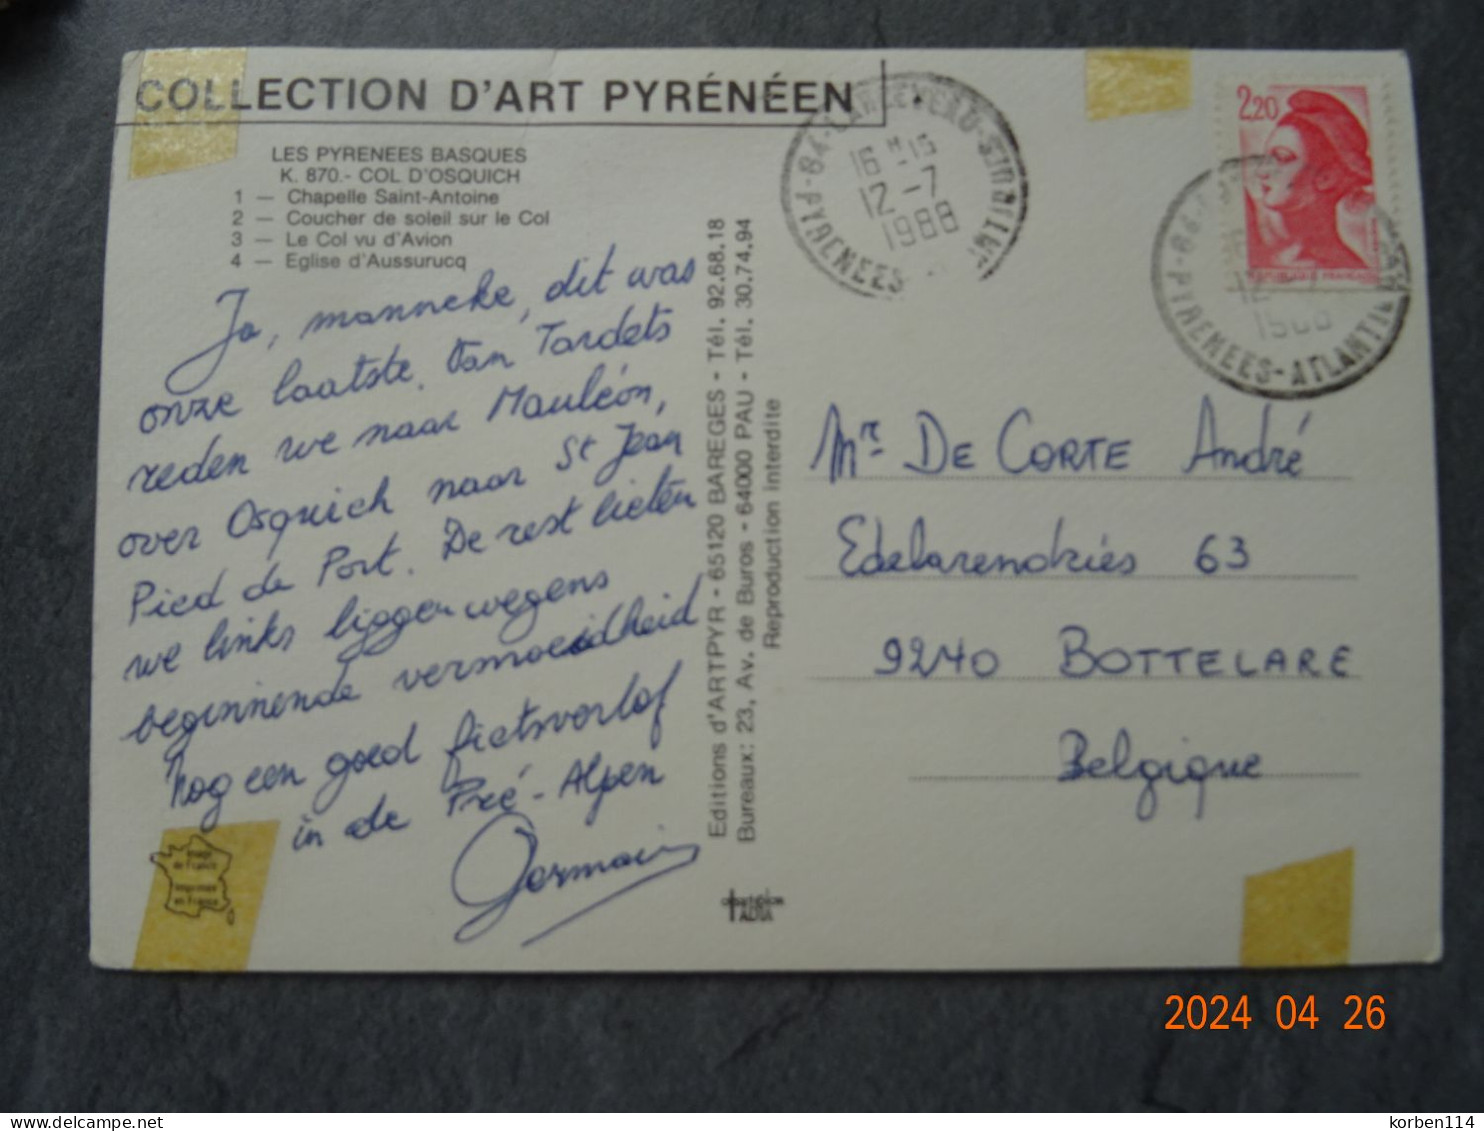 COLLECTION D'ART PYRÉNÉEN
LES PYRENEES BASQUES
K. 870.- COL D'OSQUICH
1 — Chapelle Saint-Antoine
2 — Coucher de soleil sur le Col
3 — Le Col vu d'Avion
4 — Eglise d'Aussurucq
Ja, manneke, dit was
onze laatste. Van Tardets
reden we naar Mauléon,
over Osquich naar St Jean
Pied de Port. De rest lieten
we links liggen wegens
beginnende vermoeidheid
Nog een goed fietsverlof
in de Pré-Alpen
Germain
Editions d'ARTPYR - 65120 BAREGES - Tél. 92.68.18
Bureaux: 23, Av. de Buros - 64000 PAU - Tél. 30.74.94
Reproduction interdite
16 H 15
12 -7
1988
PYRENEES-ATLANTIQUES
2,20
PYRENEES-ATLANTI
Mr. DE CORTE André
Edelarendries 63
9240 BOTTELARE
Belgique
2024 04 26
korben114